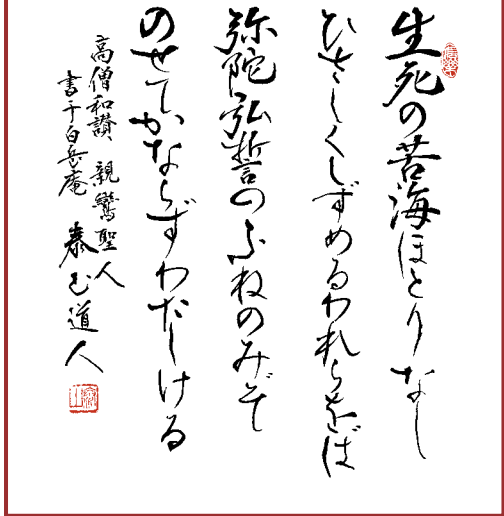 生死の苦海ほとりなし
ひさしくしずめるわれらをば
弥陀弘誓のふねのみぞ
のせてかならずわたしける
高僧和讃 親鸞聖人
書于白岳庵 泰
道人